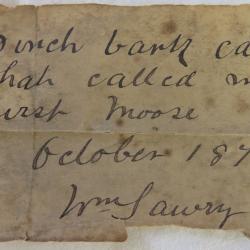 Birch bark ca
that called m
first Moose
October 187
Wm Lawry